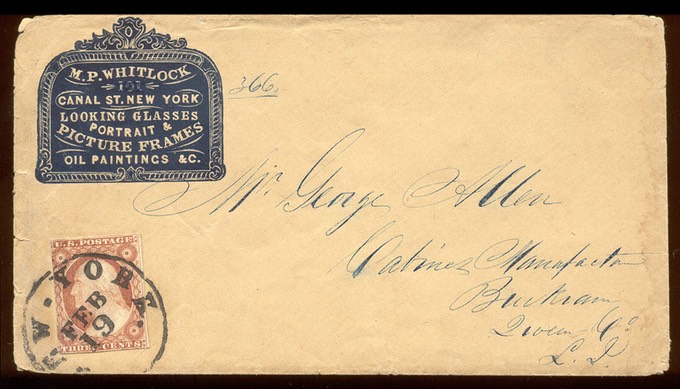 M.P. WHITLOCK
CANAL ST. NEW YORK
LOOKING GLASSES
PORTRAIT &
PICTURE FRAMES
OIL PAINTINGS &C.
366.
Mr. George Allen
Cabinet Manufactor
Buckram
Queens Co
L. I.
U.S. POSTAGE
THREE CENTS
W-YORK
FEB
19